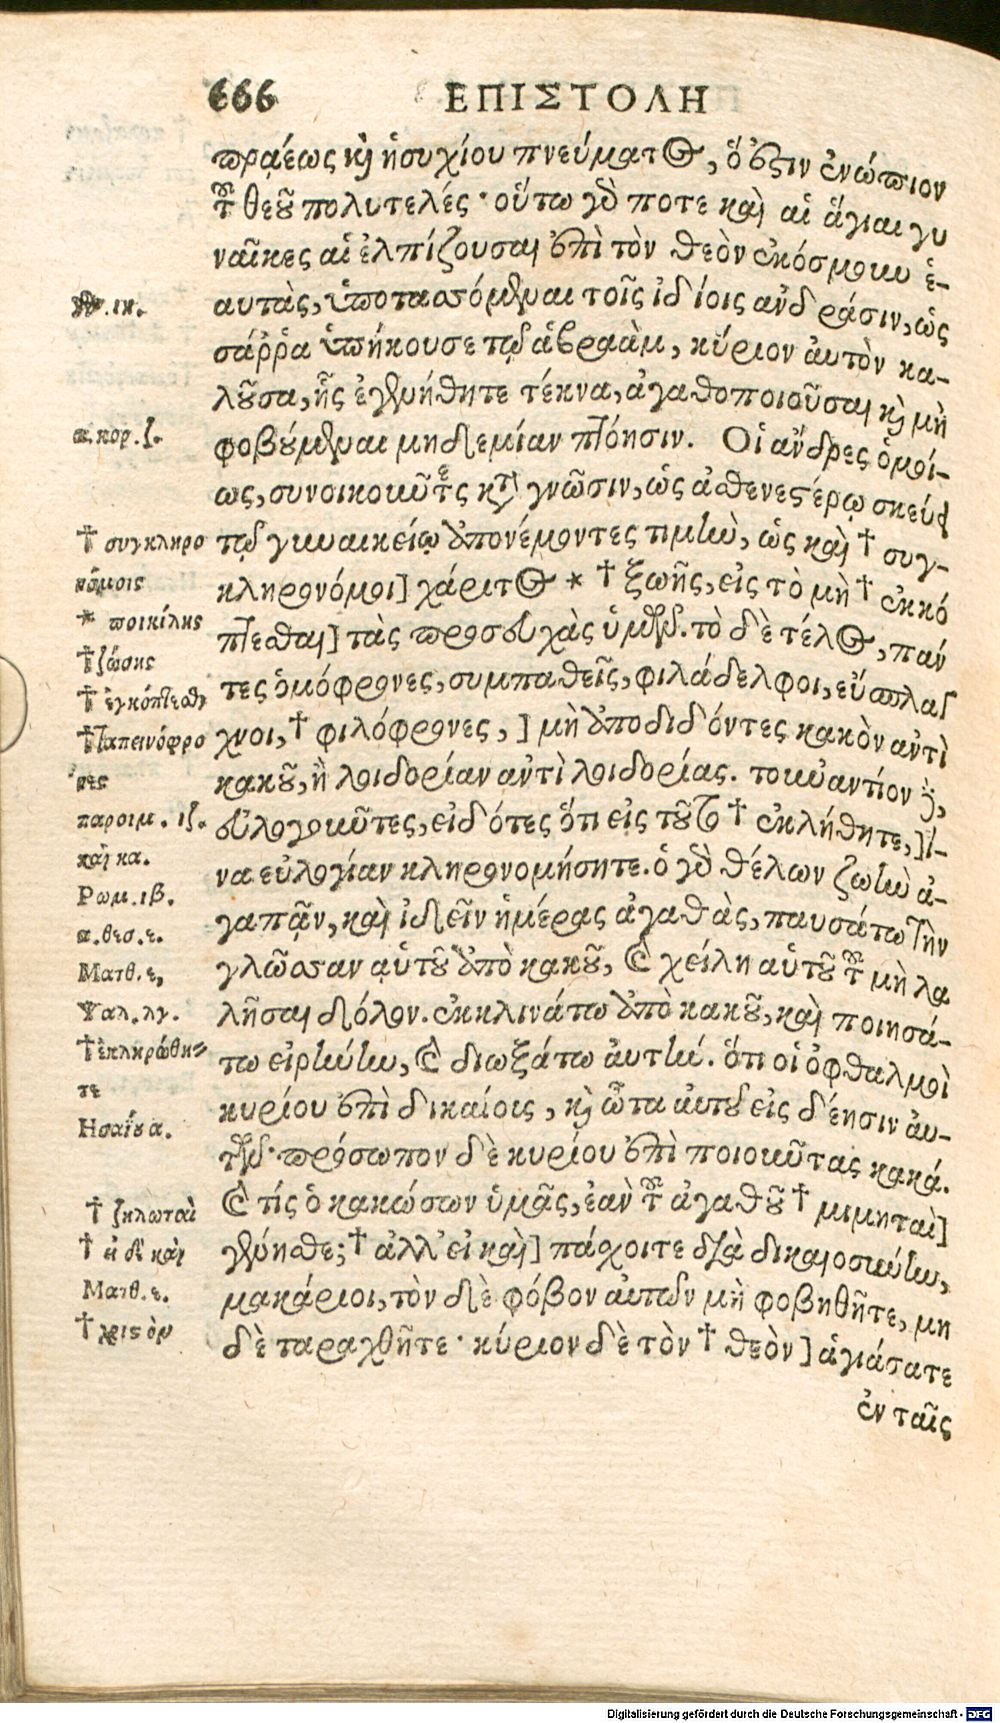 666 ΕΠΙΣΤΟΛΗ
πρᾳέως καὶ ἡσυχίου πνεύματος, ὅ ἐστιν ἐνώπιον
τοῦ θεοῦ πολυτελές· οὕτω γάρ ποτε καὶ αἱ ἅγιαι γυ
ναῖκες αἱ ἐλπίζουσαι ἐπὶ τὸν θεὸν ἐκόσμουν ἑ-
αυτὰς, ὑποτασσόμεναι τοῖς ἰδίοις ἀνδράσιν, ὡς
Γεν. ιη.
σάῤῥα ὑπήκουσε τῷ ἀβραὰμ, κύριον ἀυτὸν κα-
λοῦσα, ἧς ἐγενήθητε τέκνα, ἀγαθοποιοῦσαι καὶ μὴ
φοβούμεναι μηδεμίαν πτόησιν. Οἱ ἄνδρες ὁμοί-
α. κορ. ζ.
ως, συνοικοῦντες κατὰ γνῶσιν, ὡς ἀσθενεστέρῳ σκεύει
τῷ γυναικείῳ ἀπονέμοντες τιμὴν, ὡς καὶ † συγ-
† συγκληρο
κληρονόμοι] χάριτος * † ζωῆς, εἰς τὸ μὴ † ἐκκό
νόμοις
πτεσθαι] τὰς προσευχὰς ὑμῶν. τὸ δὲ τέλος, πάν
* ποικίλης
τες ὁμόφρονες, συμπαθεῖς, φιλάδελφοι, εὔσπλαγ
† ζώσης
† ἐγκόπτεσθαι
χνοι, † φιλόφρονες, ] μὴ ἀποδιδόντες κακὸν ἀντὶ
† ταπεινόφρο
κακοῦ, ἢ λοιδορίαν ἀντὶ λοιδορίας. τοὐναντίον δὲ,
νες
εὐλογοῦντες, εἰδότες ὅτι εἰς τοῦτο † ἐκλήθητε, ] ἵ-
παροιμ. ιζ.
να εὐλογίαν κληρονομήσητε. ὁ γὰρ θέλων ζωὴν ἀ-
καὶ κα.
Ρωμ. ιβ.
γαπᾷν, καὶ ἰδεῖν ἡμέρας ἀγαθὰς, παυσάτω τὴν
α. θεσ. ε.
γλῶσσαν αὑτοῦ ἀπὸ κακοῦ, καὶ χείλη αὑτοῦ τοῦ μὴ λα
Ματθ. ε,
λῆσαι δόλον. ἐκκλινάτω ἀπὸ κακοῦ, καὶ ποιησά-
Ψαλ. λγ.
τω εἰρήνην, καὶ διωξάτω ἀυτήν. ὅτι οἱ ὀφθαλμοὶ
† ἐπληρώθη-
τε
κυρίου ἐπὶ δικαίοις, καὶ ὦτα ἀυτοῦ εἰς δέησιν ἀυ-
Ησαΐου α.
τῶν· πρόσωπον δὲ κυρίου ἐπὶ ποιοῦντας κακά.
καὶ τίς ὁ κακώσων ὑμᾶς, ἐὰν τοῦ ἀγαθοῦ † μιμηταὶ]
† ζηλωταὶ
γένησθε; † ἀλλ' εἰ καὶ] πάσχοιτε διὰ δικαιοσύνην,
† εἰ δὲ καὶ
μακάριοι, τὸν δὲ φόβον ἀυτῶν μὴ φοβηθῆτε, μη
Ματθ. ε.
δὲ ταραχθῆτε· κύριον δὲ τὸν † θεὸν] ἁγιάσατε
† χριστὸν
ἐν ταῖς
Digitalisierung gefördert durch die Deutsche Forschungsgemeinschaft - DFG